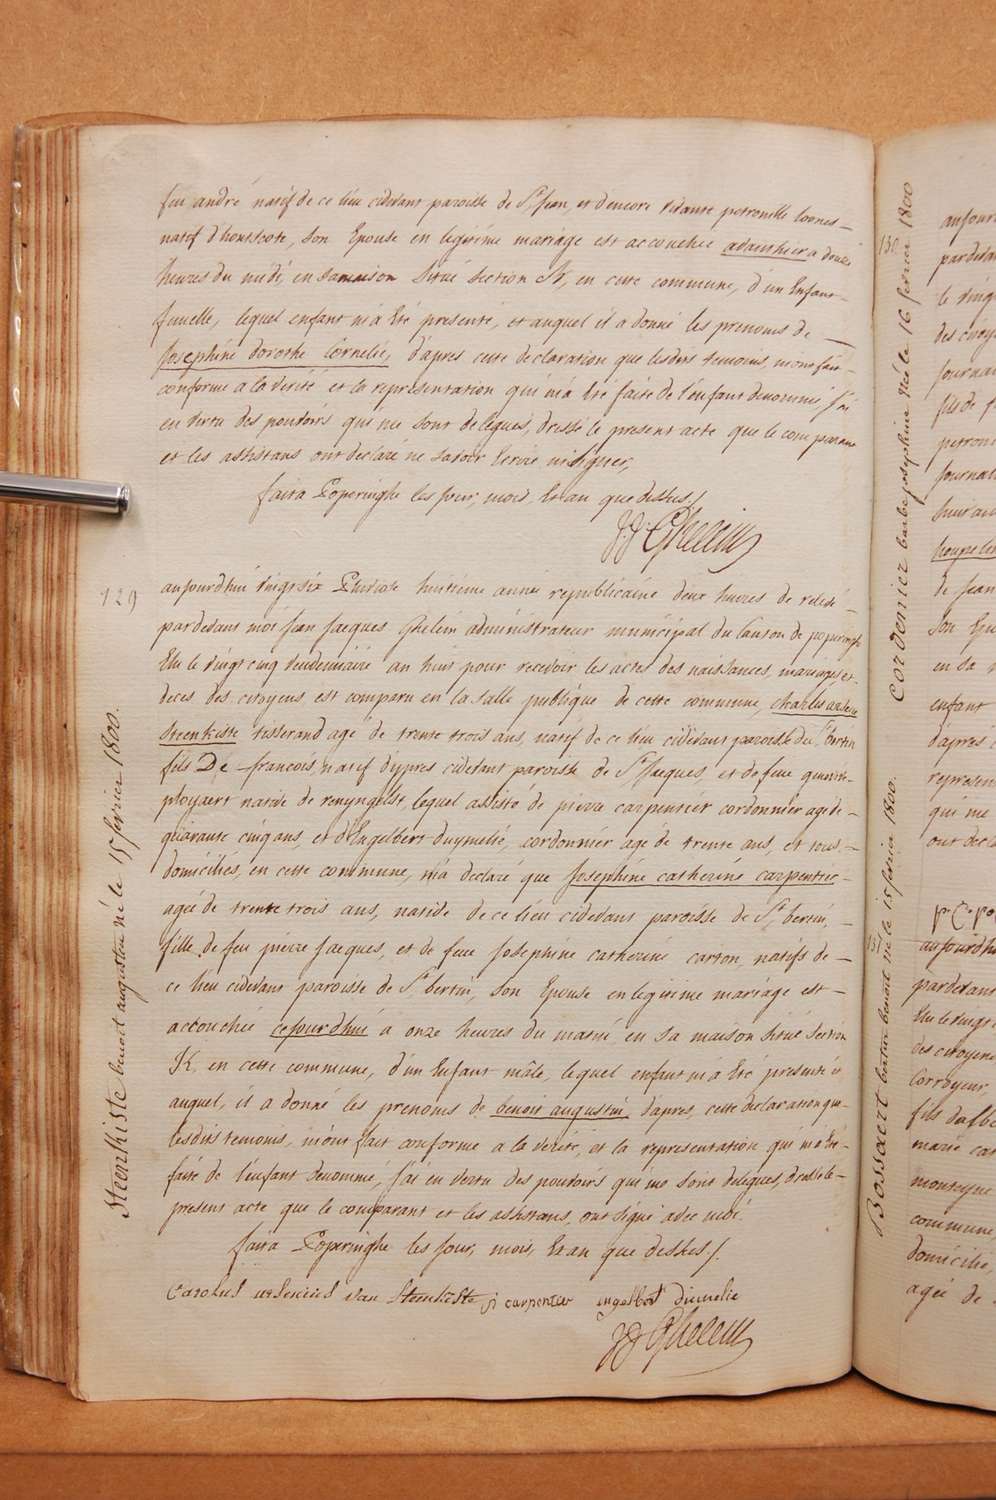 feu andré natif de ce lieu cidevant paroisse de St Jean, et d'encore vivante petronille Cornes-
natif d'hontscote, son Epouse en legitime mariage est accouchée avanthier a douze
heures du midi, en sa maison situé section A, en cette commune, d'un Enfant
femelle, lequel enfant m'a été presenté, et auquel il a donné les prenoms de
Josephine dorothe Cornelie, d'apres cette declaration que lesdits temoins, m'ont fait
conforme a la verité et la representation qui m'a été faite de l'enfant denommé, j'ai
en vertu des pouvoirs qui me sont delegués, dressé le present acte que le comparant
et les assistans ont declaré ne savoir Ecrire ni signer,
fait a Poperinghe les jour, mois, Et an que dessus /.
J:J: Ghelein
129
aujourdhui vingt six Pluviose huitieme année republicaine deux heures de relevé
pardevant moi Jean Jacques Ghelein administrateur municipal du Canton de poperinghe
Elu le vingt cinq vendemiaire an huit pour recevoir les actes des naissances, mariages et
deces des citoyens est comparu en la salle publique de cette commune, charles arsene
Steenkiste tisserand agé de trente trois ans, natif de ce lieu cidevant paroisse du St bertin
fils De francois, natif d'ypres cidevant paroisse de St Jacques, et de feue
ployaert native de renyngelst, lequel assisté de pierre carpentier cordonnier agé de
quarante cinq ans, et d'Engelbert duymelié, cordonnier agé de trente ans, et tous
domiciliés, en cette commune, m'a declaré que Josephine catherine carpentier
agée de trente trois ans, native de ce lieu cidevant paroisse de St bertin,
fille de feu pierre Jacques, et de feue Josephine catherine carton, natifs de
ce lieu cidevant paroisse de St bertin, son Epouse en legitime mariage est
accouchée cejourd'hui a onze heures du matin en sa maison situé section
K, en cette commune, d'un Enfant mâle, lequel enfant m'a été presenté et
auquel, il a donné les prenoms de benoit augustin, d'apres, cette declaration que
lesdits temoins, m'ont fait conforme a la verité, et la representation qui m'a été
faite de l'enfant denommé, j'ai en vertu des pouvoirs qui me sont delegués, dressé le
present acte que le comparant et les assistans, ont signé avec moi.
fait a Poperinghe les Jour, mois, Et an que dessus /.
Carolus arsenius van Steenkiste p carpentier engelbert dumelie
J:J: Ghelein
Steenkiste benoit augustin né le 15 fevrier 1800.
130
Cordenier barbe josephine Née le 16 fevrier 1800
131
Bossaert bertin benoit né le 15 fevrier 1800.
pardevant
le vingt
fils de
enfant
d'après
qui me
aujourdhui
pardevant
Elu le vingt
des citoyens
Corroyeur,
montagne
commune,
domicilié,
agée de